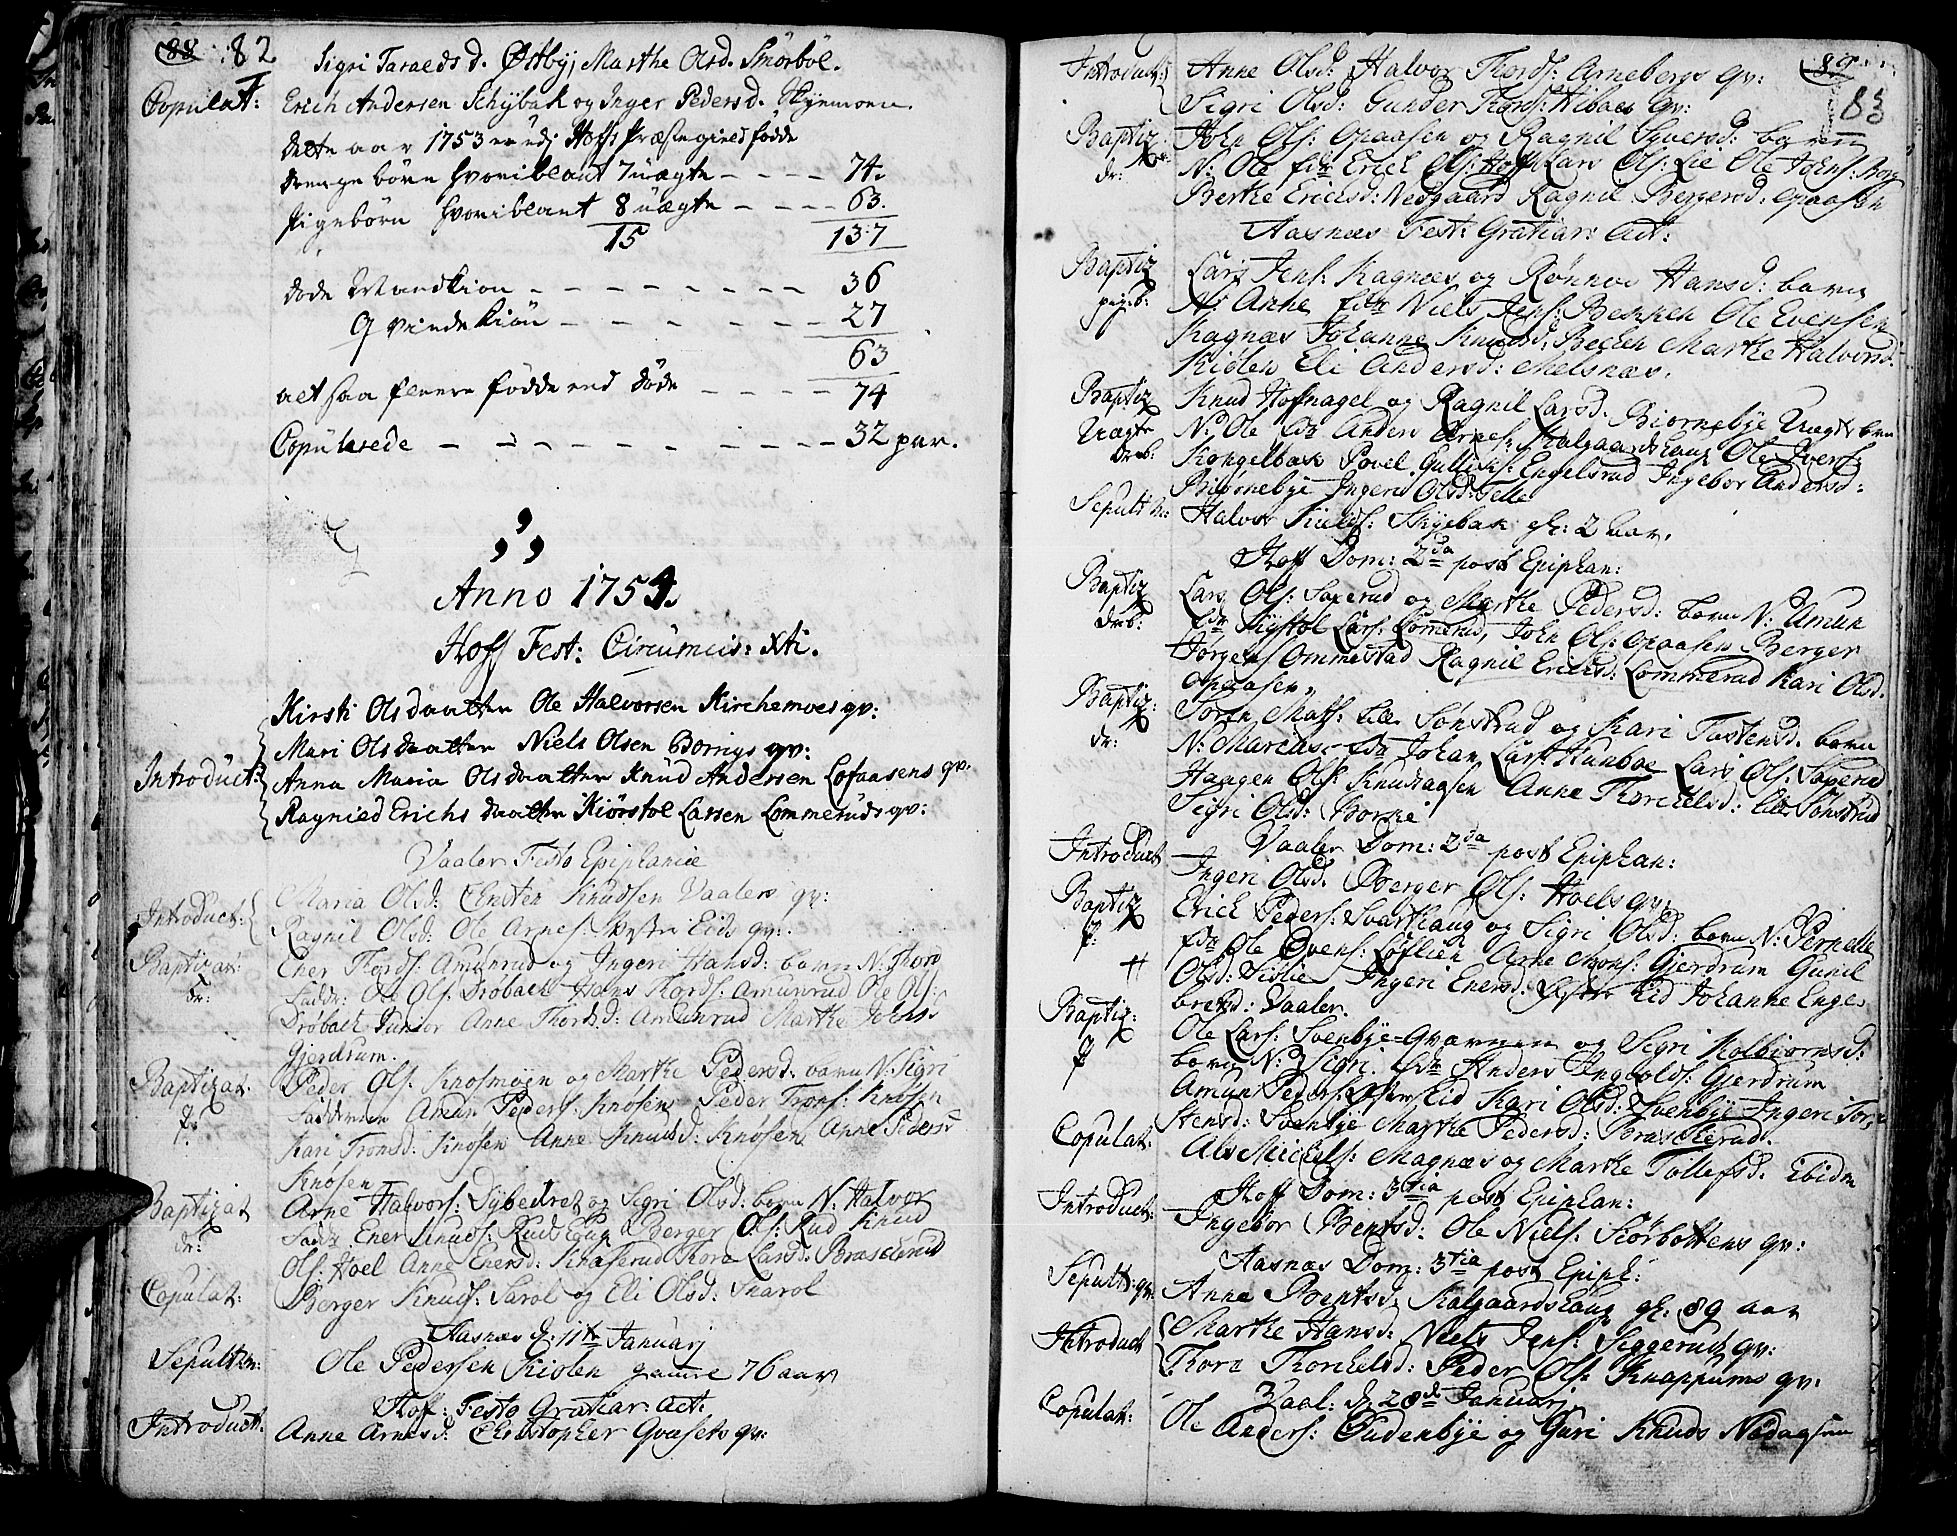 88 82
Sigri Taraldsd. Østby, Marthe Olsd. Smörböl.
Copulat: Erich Andersen Schÿbak og Inger Pedersd. Skÿnmoen.
dette aar 1753 er udj Hoffs Præstegield födde
drengebörn hvoriblant 7 uægte - - - - 74.
Pigebörn hvoriblant 8 uægte - - - - 63.
15 137
döde Mandkiön - - - - - - - - 36
Qvindekiön - - - - - - - 27
63
alt saa fleere födde end döde - - - - 74
Copulerede - - - - - - - - - 32 par.
Anno 1754.
Hoff Fest: Circumcis: Xti.
Kirsti Olsdaatter Ole Halvorsen Kirchemoes qv:
Mari Olsdaatter Niels Olsen Borrigs qv:
Introduct: Anna Maria Olsdaatter Knud Andersen Lofaasens qv.
Ragnied Erichsdaatter Kiörstol Larsen Lommeruds qv:
Vaaler Festo Epiphaniæ
Maria Olsd: Christen Knudsen Vaalers qv:
Introduct: Ragnil Olsd: Ole Arnes: Øystre Eids qv:
Baptizat: Ener Thords: Amunrud og Ingeri Hansd: barn N: Thord
dr: Faddr: Ole Ols: Dröbach Hans Thords: Amunrud Ole Ols:
Dröbach Junior Anne Thordsd: Amunrud Marthe Johns:
Gjerdrum.
Baptizat. Peder Ols: Knosmoen og Marthe Pedersd. barn N: Sigri
p: Faddrene Amun Peders: Knosen Peder Trons: Knosen
Kari Tronsd: Knosen Anne Knudsd: Knosen Anne Pedersd
Knosen
Baptizat Arne Halvors: Dybedret og Sigri Olsd: barn N: Halvor
dr: Faddr Ener Knuds: Rud Eug Berger Ols: Rud Knud
Ols: Hoel Anne Enersd: Knaserud Thora Larsd: Braschrud
Copulat: Berger Knuds: Sarol og Eli Olsd: Skarol
Aasnæs d: 11te Januarj
Sepult: m: Ole Pedersen Kiolen gamel 76 aar
Hof: Festo Gratiar: act:
Introduct: Anne Arnesd: Christopher Qvæsets qv:
83
Introduct: Anne Olsd: Halvor Thords: Arnebergs qv:
Sigri Olsd: Gunder Thords: Hiboes qv:
Baptiz John Ols: Opaasen og Ragnil Syversd: barn
dr: N: Ole fdr Erich Ols: Hoff Lars Ols: Lie Ole Johns: Borg
Berthe Ericksd: Nedgaard Ragnil Bergersd: Opaasen
Aasnæs Fest: Gratiar: Act:
Baptiz Lars Jens: Kagnæs og Rønnov Hansd: barn
pigeb: N: Anne fdr Niels Jens: Bekken Ole Evensen
Kagnæs Johanne Knudsd: Bechen Marthe Halvorsd:
Kiölen Eli Andersd: Melsnæs.
Baptiz Knud Hofnagel og Ragnil Larsd. Biörnebye Uægte barn
Uægte N: Ole fdr Anders Arnes: Kalgaardshaug Ole Ivers:
dreb: Kongelbak Povel Gulliks: Engelsrud Ingebor Andersd:
Biörnebye Ingeri Olsd: Telle
Sepult m: Halvor Knuds: Skybak gl: 2 aar.
Hoff Dom: 2da post Epiphan:
Baptiz Lars Ols: Sagerud og Marthe Pedersd: barn N: Amun
dreb: fdr Kystol Lars: Lomerud, John Ols: Opaasen Berger
Jörgens Ommestad Ragnil Ericksd: Lommerud Kari Olsd.
Opaasen.
Baptiz: Sören Mats: Lille Sönstrud og Kari Tostensd. barn
dr: N: Marcus fdr Johan Lars: Hunboe Lars Ols: Sagerud
Haagen Ols: Knusaasen Anne Thorchelsd: Lille Sönstrud
Sigri Olsd: Borske
Vaaler Dom: 2da post Epiphan:
Introduct Ingeri Olsd. Berger Ols: Hoels qv:
Baptiz Erich Peders: Svarthaug og Sigri Olsd: barn N: Pernelle
p: fdr Ole Evens: Löflien Arne Mons: Gjerdrum Gunil
Olsd: Vislie Ingeri Enersd: Østre Eid Johanne Enge
bretsd: Vaaler.
Baptiz: Ole Lars: Svenbye-Qværnen og Sigri Kolbiörnsd.
p barn N: Sigri. fdr Anders Ingvolds: Gjerdrum
Amun Peders: Østre Eid Kari Olsd: Svenbye Ingeri Tor
stensd: Svenbye Marthe Pedersd: Braskerud.
Copulat: Als Michels: Magnæs og Marthe Tollefsd. ibidm
Hoff Dom: 3tia post Epiphan:
Introduct: Ingebor Bentsd: Ole Niels: Skörbottens qv:
Aasnæs Dom: 3tia post Epiph:
Sepult: qv: Anne Bentsd: Kalgaardshaug gl: 89 aar
Introduct Marthe Hansd: Niels Jens: Siggeruds qv:
Thora Thorchelsd: Peder Ols: Knappums qv:
Vaal: d: 28de Januarj.
Copulat: Ole Anders: Eudenbye og Guri Knuds Nodaasen